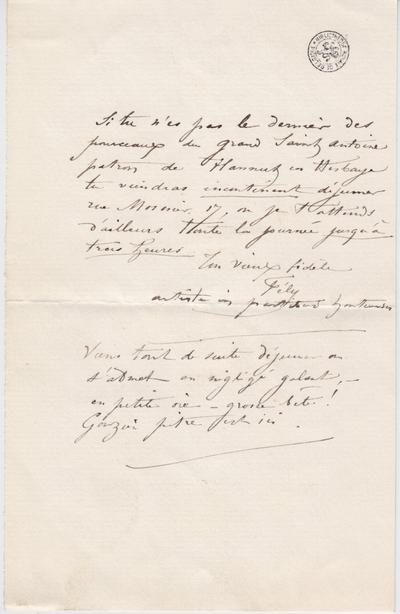 Si tu n'es pas le dernier des
pourceaux du grand Saint Antoine
patron de Hannut en Hesbaye
tu viendras incontinent déjeuner
rue Mosnier, 17, où je t'attends
d'ailleurs toute la journée jusqu'à
trois heures.
Ton vieux fidèle
Fély
artiste in partibus
Viens tout de suite déjeuner on
s'admet en négligé galant, –
en petite oie – grosse bête!
Gouzien père est ici.